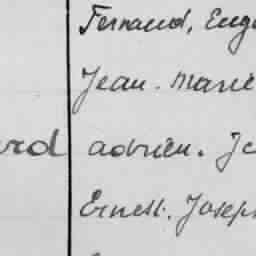 Fernand, Eug
Jean-Marie
rd adrien. Je
Ernest. Joseph